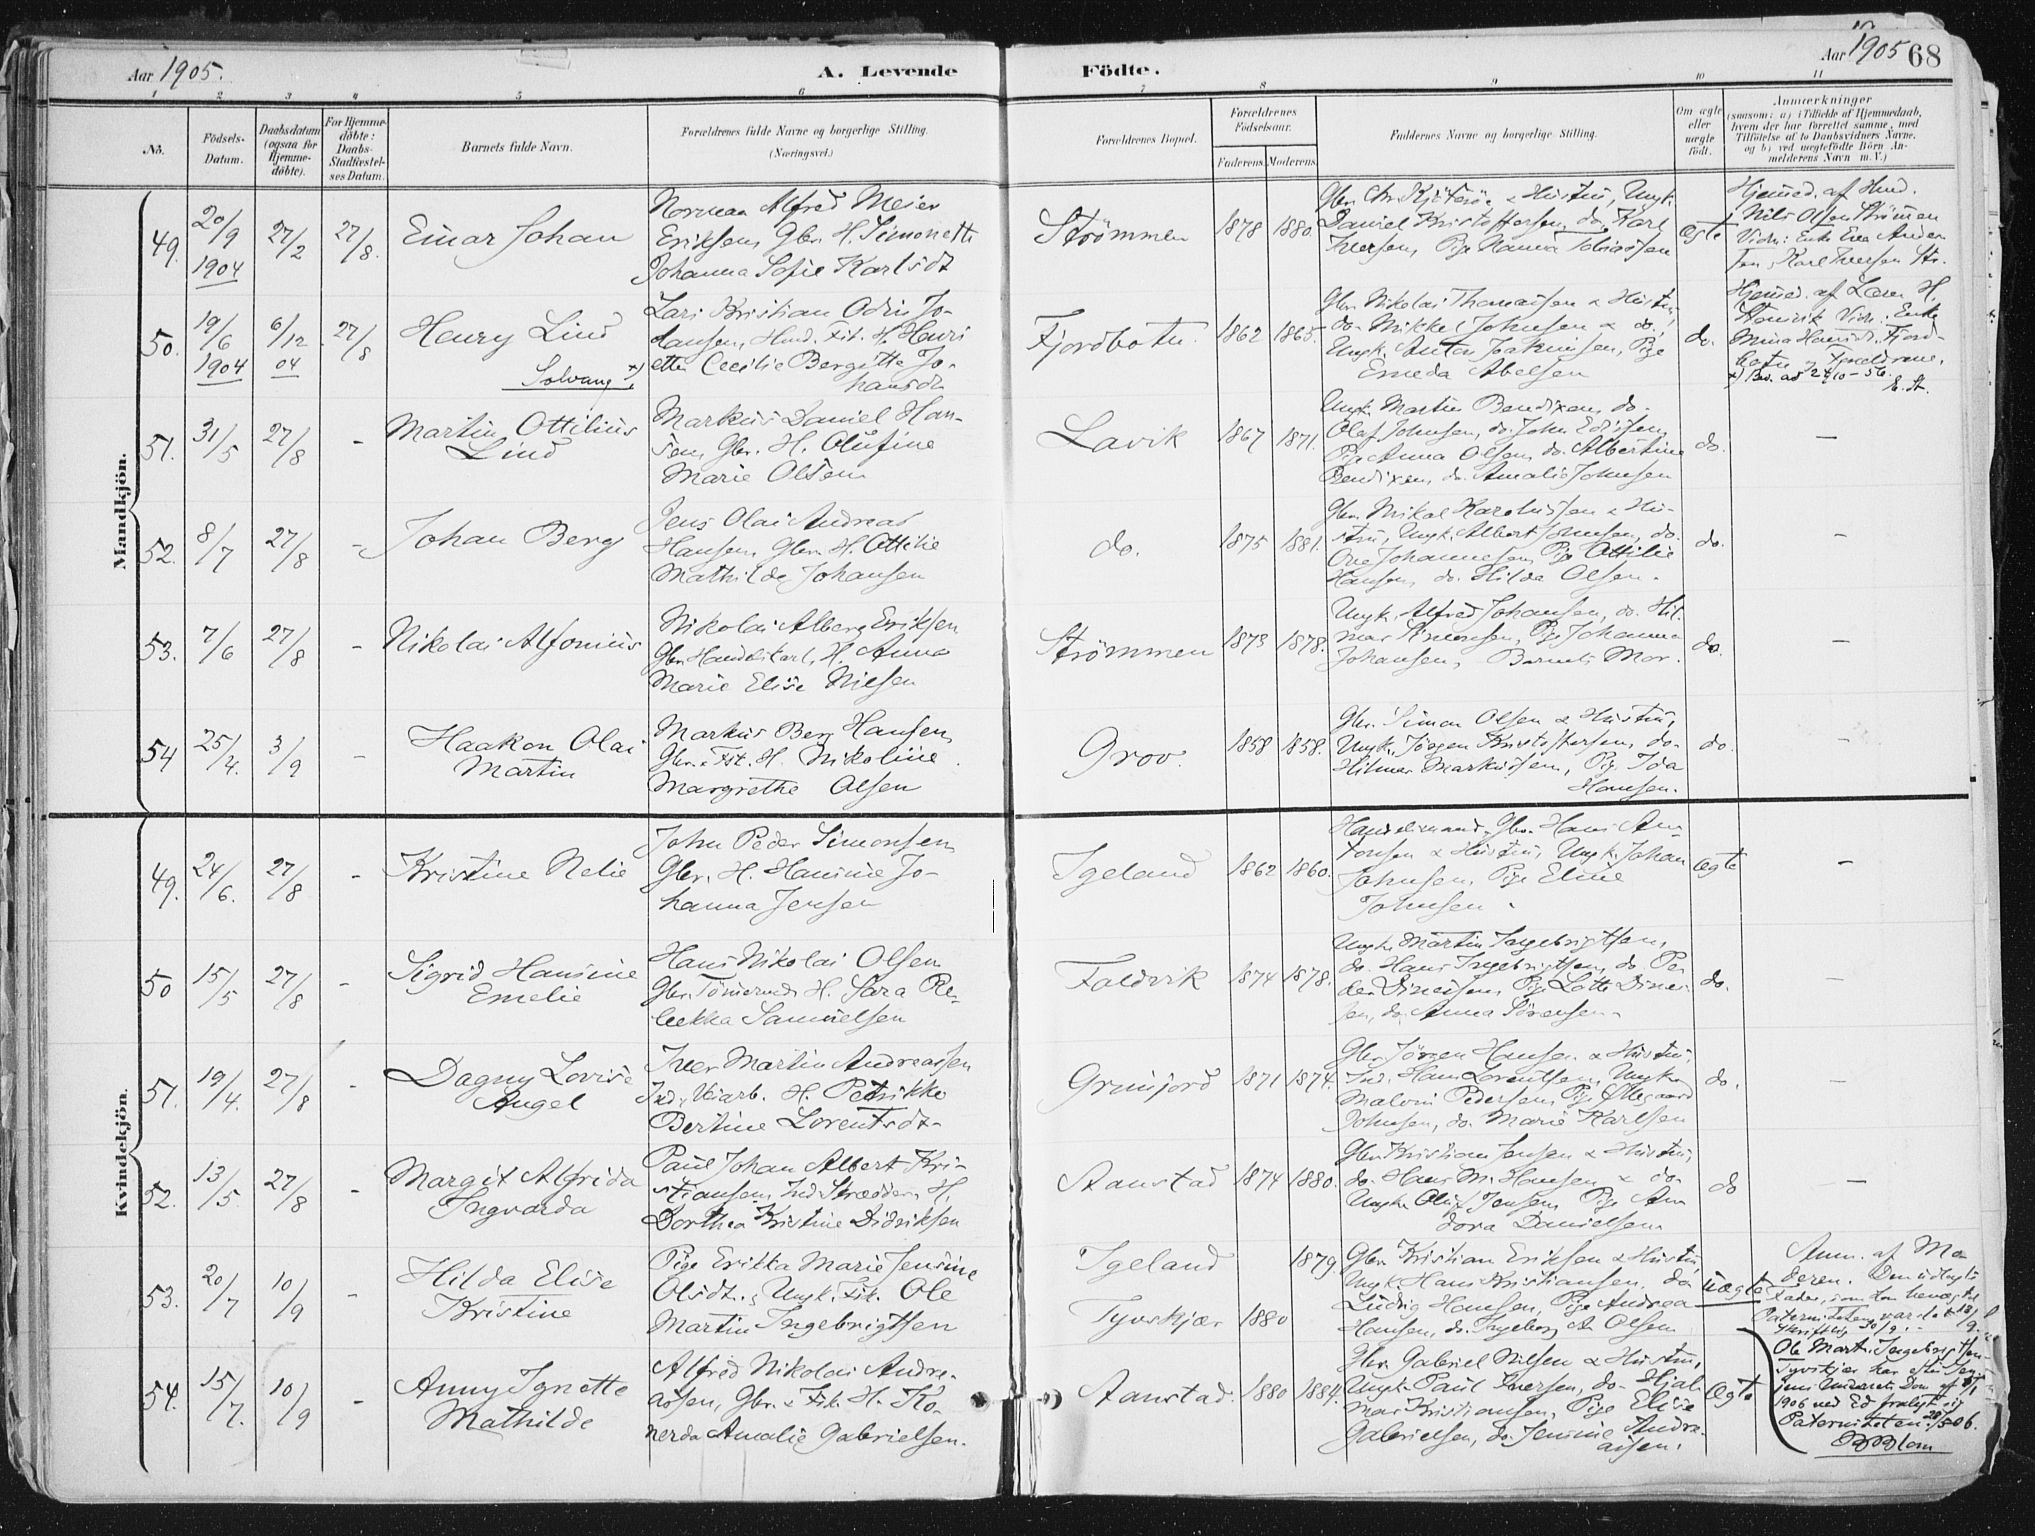 Aar 1905.
A. Levende
Födte.
Aar 1905
68
1 2 3 4 5 6 7 8 9 10 11
No.
Födsels-
Datum.
Daabsdatum
(ogsaa for
Hjemme-
døbte).
For Hjemme-
döbte:
Daabs-
Stadfæstel-
ses Datum.
Barnets fulde Navn.
Forældrenes fulde Navne og borgerlige Stilling.
(Næringsvei.)
Forældrenes Bopæl.
Forældrenes
Födselsaar.
Faderens. Moderens.
Faddernes Navne og borgerlige Stilling.
Om ægte
eller
uægte
födt.
Anmærkninger
(saasom: a) i Tilfælde af Hjemmedaab,
hvem der har forrettet samme, med
Tilføielse af to Daabsvidners Navne,
og b) ved uægtefødte Börn An-
melderens Navn m. V.)
Mandkjön.
49. 20/9 1904 27/2 27/8. Einar Johan
Norman Alfred Meier
Eriksen, Gbr. H. Simonette
Johanna Sofie Karlsdt
Strömmen 1878 1880.
Daniel Kristoffersen, do. Karl
Iversen, Pige Hanna Tobiassen
ægte
Hjemmed. af Hmd.
Nils Olsen Strömmen
Vidn: Enke Ane Ander-
sen, Karl Iversen Str.
50. 19/6 1904 6/12 04 27/8 Henry Lind
Solvang x)
Lars Kristian Odin Jo-
hansen, Hmd. Fik. H. Henri-
ette Cecilie Bergitte Jo-
hansdt.
Fjordbotn. 1862 1865.
Gbr. Nikolai Thomassen & Hustru,
do. Mikkel Johnsen & do.,
Ungk. Anton Joakimsen, Pige
Emeda Abelsen
do.
Hjemmed. af Lærer H.
Vidn: Enke
Mina Hansdt. Fjord-
botn og Forældrene.
x) Bev. ad 24/10-56.
E. St.
51. 31/5 27/8 - Martin Ottilius
Lind
Markus Daniel Han-
sen, Gbr. H. Olufine
Marie Olsen
Lavik 1867 1871.
Ungk. Martin Bendixen, do.
Olaf Johnsen, do. John Edisen,
Pige Anna Olsen, do. Albertine
Bendixen, do. Amalie Johnsen
do. -
52. 8/7 27/8 - Johan Berg
Jens Olai Andreas
Hansen, Gbr. H. Ottilie
Mathilde Johansen
do. 1875 1881.
Gbr. Mikal Karolussen & Hu-
stru, Ungk. Albert Johnsen, do.
Ove Johannesen, Pige Ottilie
Hansen, do. Hilda Olsen.
do. -
53. 7/6 27/8 - Nikolai Alfonius
Nikolai Alberg Eriksen
Gbr. Handelskarl, H. Anna
Marie Elise Nilsen
Strömmen 1873 1878.
Ungk. Alfred Johansen, do. Hil-
mar Simonsen, Pige Johanna
Johansen, Barnets Mor.
do. -
54 25/4. 3/9 - Haakon Olai
Martin
Markus Berg Hansen,
Gbr. & Fik. H. Nikoline
Margrethe Olsen
Grov. 1858 1858.
Gbr. Simon Olsen & Hustru,
Ungk. Jörgen Kristoffersen, do.
Hilmar Markussen, Pige Ida
Hansen.
do. -
Kvindekjön.
49. 24/6. 27/8 - Kristine Nelie
John Peder Simonsen,
Gbr. H. Hansine Jo-
hanna Jensen
Igeland 1862 1860.
Handelsmand, Gbr. Hans An-
tonsen & Hustru, Ungk. Johan
Johnsen, Pige Eline
Johnsen.
ægte -
50 15/5 27/8 - Sigrid Hansine
Emelie
Hans Nikolai Olsen
Gbr. Tömmermd. H. Sara Re-
bekka Samuelsen
Faldvik 1874 1878.
Ungk. Martin Ingebrigtsen,
do. Hans Ingebrigtsen, do. Pe-
der Dinesen, Pige Lotte Dine-
sen, do. Anna Sörensen.
do. -
51. 19/4. 27/8 - Dagny Lovise
Angel
Iver Martin Andreassen
Ind. Veiarb. H. Petrikke
Bertine Lorentsdt.
Grunfjord 1871 1874.
Gbr. Jörgen Hansen & Hustru,
Ind. Hans Lorentsen, Ungk.
Malvin Pedersen, Pige Ollegaard
Johnsen, do. Marie Karlsen
do. -
52. 13/5. 27/8 - Margit Alfrida
Ingvarda
Paul Johan Albert Kri-
stiansen, Ind. Skrædder, H.
Dorthea Kristine Didriksen
Aanstad 1874 1880.
Gbr. Kristian Jensen & Hustru,
do. Hans M. Hansen & do.
Ungk. Oluf Jensen, Pige An-
dora Danielsen.
do -
53. 20/7 10/9 - Hilda Elise
Kristine
Pige Erikka Marie Jensine
Olsdt. & Ungk. Fik. Ole
Martin Ingebrigtsen
Igeland 1879.
Tyvskjær 1880
Gbr. Kristian Eriksen & Hustru
Ungk. Hans Kristiansen, do.
Ludvig Hansen, Pige Andrea
Hansen, do. Ingeborg A. Olsen
uægte
Anm. af Mo-
deren. Den udlagte
Fader, som har benægtet
Paterniteten, varslet 18/9.
Skriftlig 30/9.
Ole Martin Ingebrigtsen
Tyvskjær har efter
Dom af
1906 ved Ed fralagt sig
Paterniteten. 20/5 06.
B Blom
54. 15/7. 10/9 - Anny Agnette
Mathilde
Alfred Nikolai Andre-
assen, Gbr. & Fik. H. Ko-
nerda Amalie Gabrielsen.
Aanstad. 1880 1884.
Gbr. Gabriel Nilsen & Hustru,
Ungk. Paul Iversen, do. Hjal-
mar Kristiansen, Pige Elise
Gabrielsen, do. Jensine Andre-
assen.
ægte